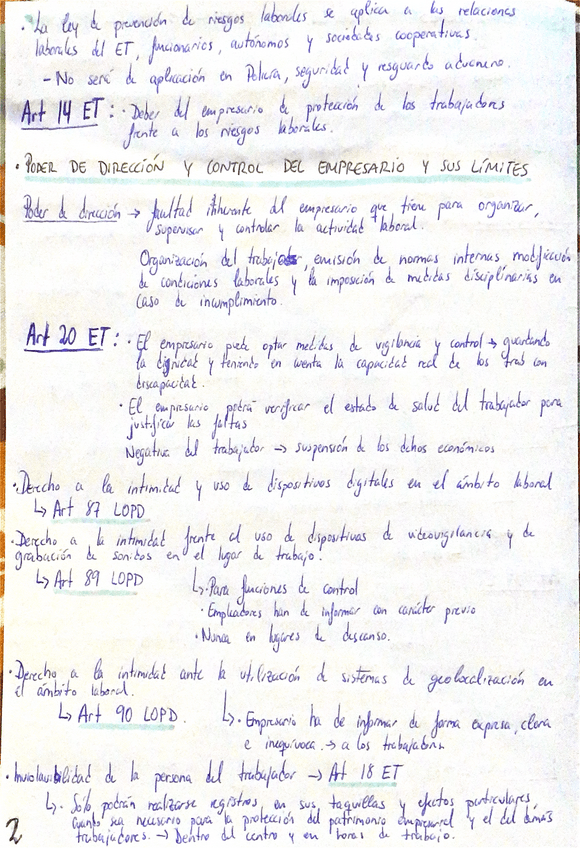 · La ley de prevención de riesgos laborales se aplica a las relaciones
laborales del ET, funcionarios, autónomos y sociedades cooperativas.
- No será de aplicación en Policía, seguridad y resguardo aduanero.
Art 14 ET: · Deber del empresario de protección de los trabajadores
frente a los riesgos laborales.
· PODER DE DIRECCIÓN Y CONTROL DEL EMPRESARIO Y SUS LÍMITES
Poder de dirección → facultad inherente del empresario que tiene para organizar,
supervisar y controlar la actividad laboral.
Organización del trabajo, emisión de normas internas modificación
de condiciones laborales y la imposición de medidas disciplinarias en
caso de incumplimiento.
Art 20 ET: · El empresario puede optar medidas de vigilancia y control → guardando
la dignidad y teniendo en cuenta la capacidad real de los trab con
discapacidad.
· El empresario podrá verificar el estado de salud del trabajador para
justificar las faltas
Negativa del trabajador → suspensión de los dchos económicos
· Derecho a la intimidad y uso de dispositivos digitales en el ámbito laboral
↳ Art 87 LOPD
· Derecho a la intimidad frente al uso de dispositivas de videovigilancia y de
grabación de sonidos en el lugar de trabajo.
↳ Art 89 LOPD ↳ · Para funciones de control
· Empleadores han de informar con carácter previo
· Nunca en lugares de descanso.
· Derecho a la intimidad ante la utilización de sistemas de geolocalización en
el ámbito laboral.
↳ Art 90 LOPD. ↳ · Empresario ha de informar de forma expresa, clara
e inequívoca. → a los trabajadores
· Inviolabilidad de la persona del trabajador → Art 18 ET
↳ · Sólo podrán realizarse registros, en sus taquillas y efectos particulares,
cuando sea necesario para la protección del patrimonio empresarial y el del demás
trabajadores. → Dentro del centro y en horas de trabajo.
2